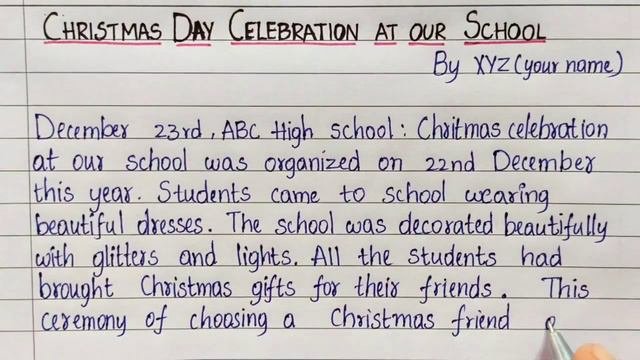 CHRISTMAS DAY CELEBRATION AT OUR SCHOOL
By XYZ (your name)
December 23rd, ABC High school: Chritmas celebration
at our school was organized on 22nd December
this year. Students came to school wearing
beautiful dresses. The school was decorated beautifully
with glitters and lights. All the students had
brought Christmas gifts for their friends. This
ceremony of choosing a Christmas friend